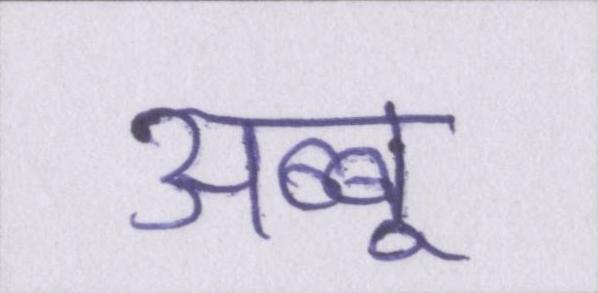 अब्बू